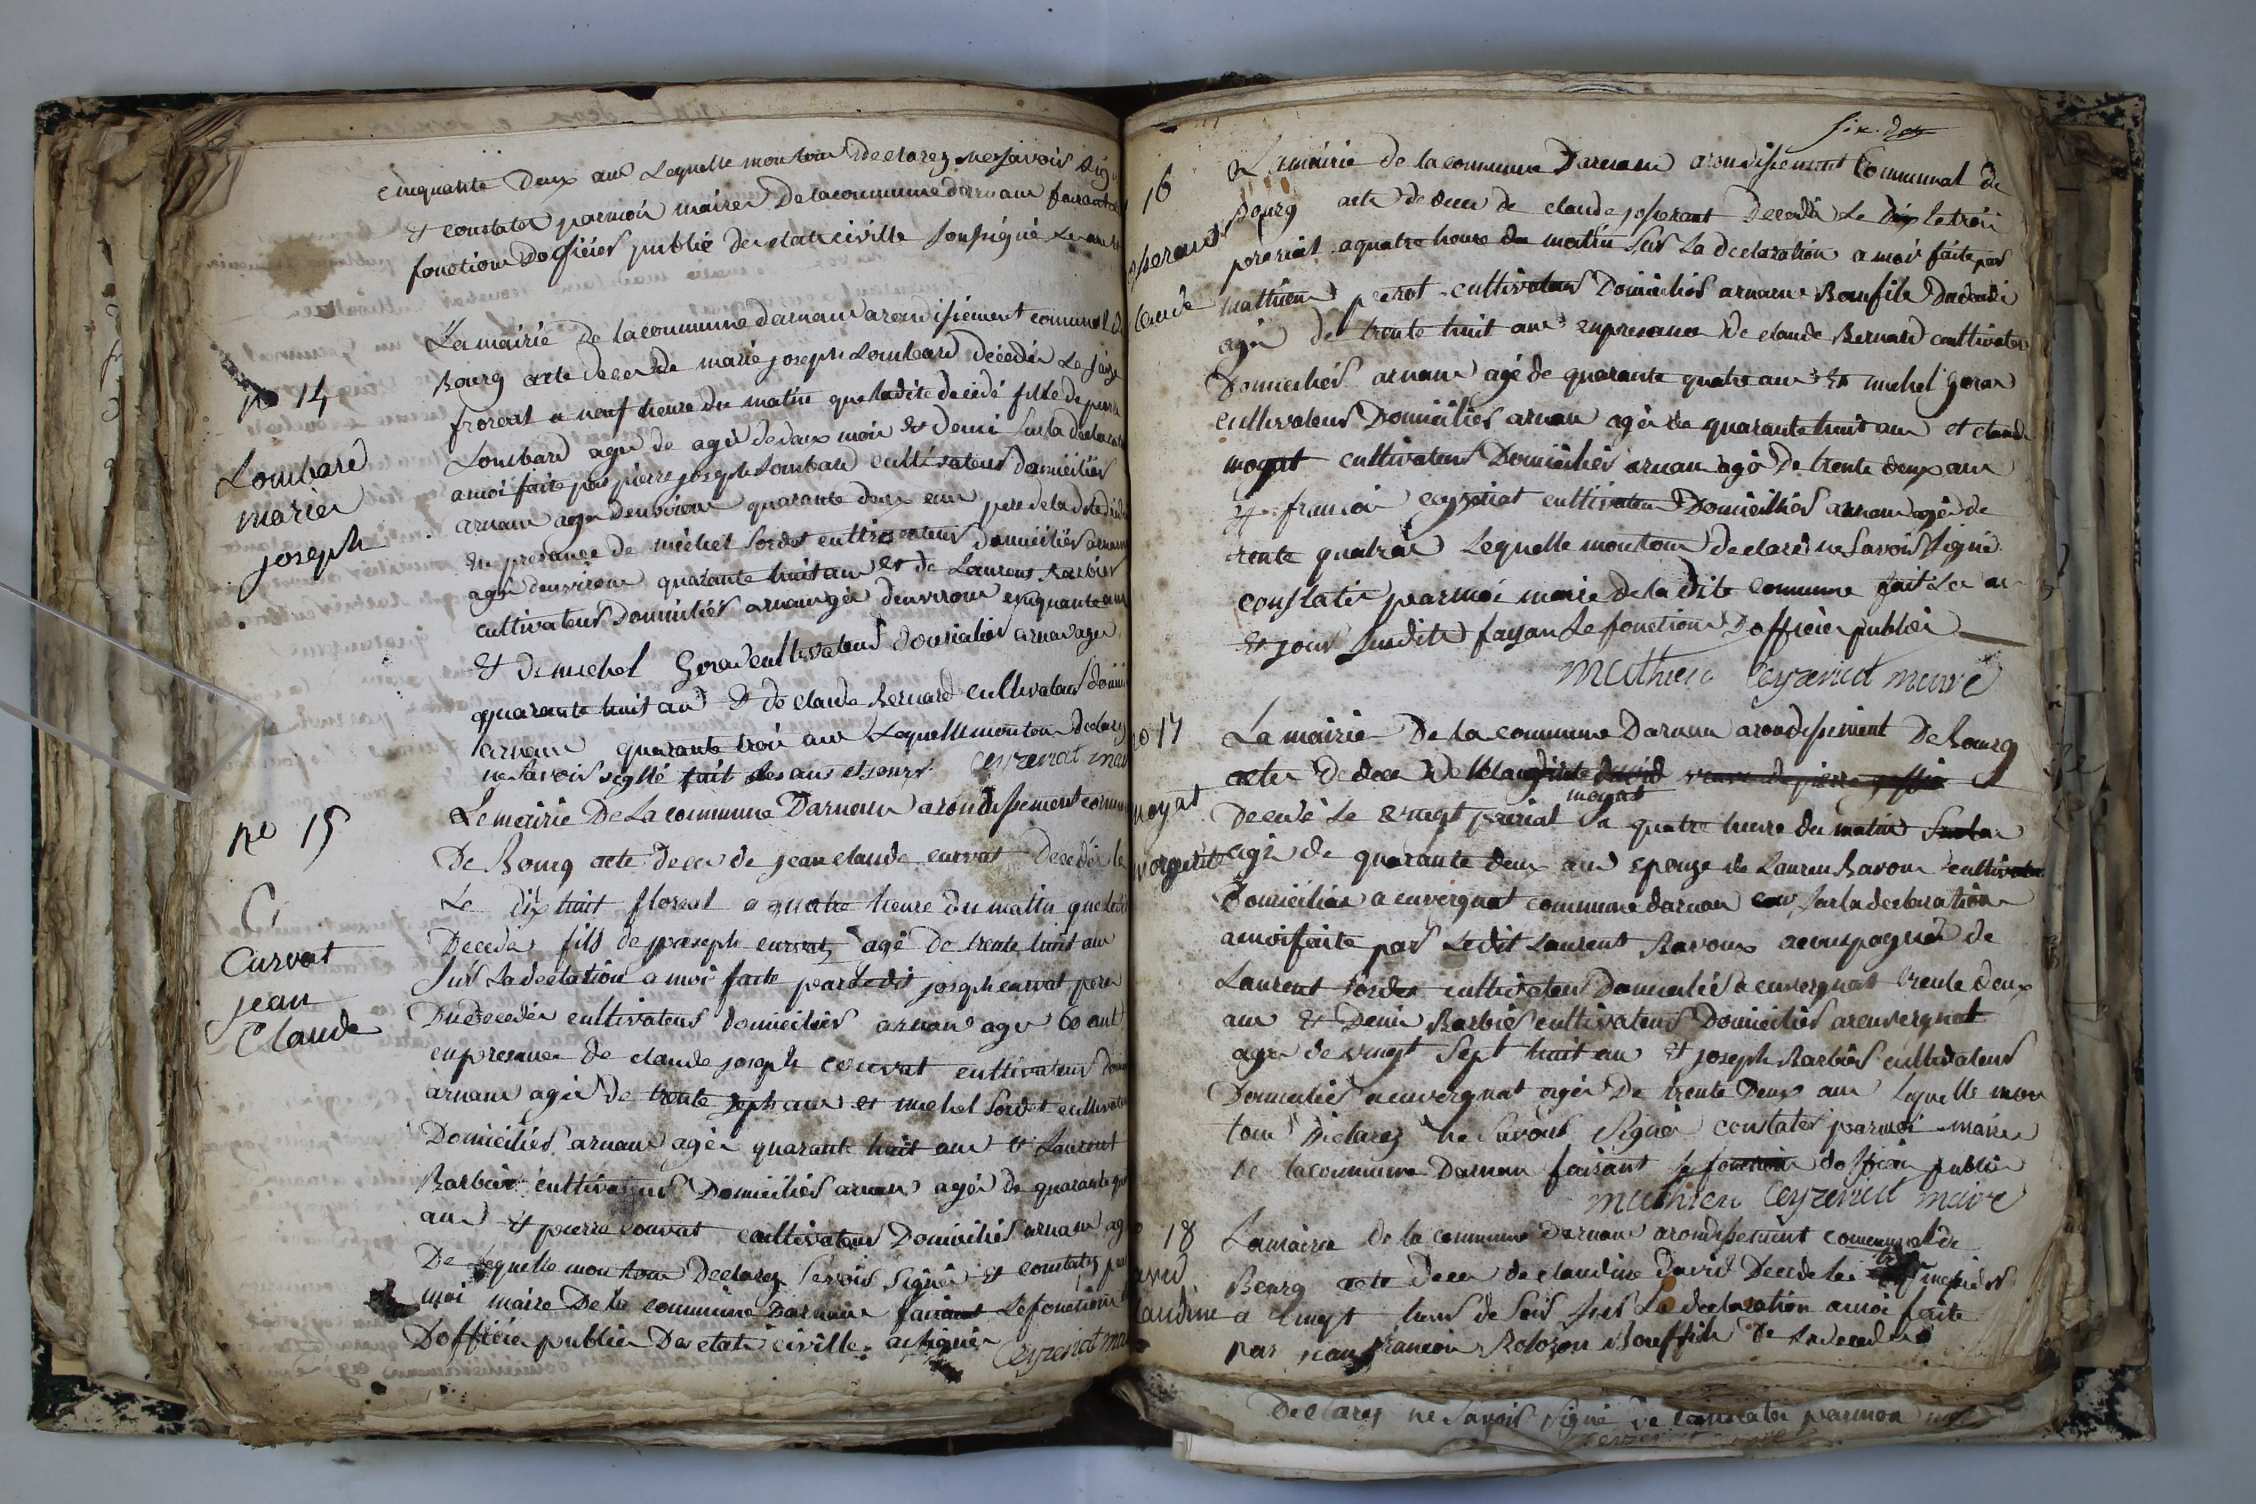 cinquante deux ans Lequelle mon tous declarez ne savoir sig
Et constater parmoi maire De lacommune darnans faisant
fonction Dofficier public de letat civille soussigné
La mairie De lacommune darnans arondissement comunal
no 14
Bourg acte deces de marie joseph Lombard décedée Le
froreal a neuf heure du matin que ladite décedé fille de pierre
Lombard
marie
joseph
Lombard agee de agée dedeux mois et demi sur la declarat
amoi faite par pierre joseph Lombard cultivateur domicilier
arnans agee denviron quarante deux ans pere de la dite
En presance de michel Sordet cultivateur domicilier arnans
agé denviron quarante huit ans et de Laurent Barbier
cultivateur Domicilier arnans agé denviron cinquante ans
Et de michel Goras cultivateur domicilier arnans agee
quarante huit ans Et de claude Bernard cultivateur domi
arnans quarante troi ans Lequelle mon tous declarez
ne savoir signé fait les ans et jours Ceyzeriat mai
no 15
Le mairie De La commune Darnans arondissement comun
De Bourg acte deces de jean claude curvat Decedée le
Curvat
jean
Claude
Le dix huit floreal a quatre heure du matin que ledit
Decedé fils de joseph curvat agé De trente huit ans
Sur La declation a moi faite par Ledit joseph curvat pere
Du decedée cultivateur domicilier arnans age 60 ans
enpresance de claude joseph courvat cultivateur domi
arnans agée De trente sept ans et michel Sordet cultivate
Domicilier arnans agée quarante huit ans et Laurent
Barbier cultivateur Domicilier arnans agée de quarante
ans Et pierre couvat cultivateur Domicilier arnans ag
De Lequelle mon tous Declarez savoir signer Et constatez par
moi maire De la commune Darnans faisant Le fonction
Dofficier public De letat civille asigner Ceyzeriat mai
six
16
La mairie de lacommune Darnans arondissement Communal de
Bourg acte de deces de claude josserant decedée Le dix letroi
osserant
claude
prererial a quatre heure du matin sur La declaration a moi faite par
mathieu perrot cultivateur Domicilier arnans Beaufils Dudecedé
agée de trente huit ans enpresance de claude Bernard cultivateur
Domicilier arnans agé de quarante quatre ans Et michel Goras
cultivateur Domicilier arnans agée de quarante huit ans et claude
moyat cultivateur Domicilier arnans agé De trente deux ans
Et francoi ceyzeriat cultivateur Domicilier arnans agée de
trente quatre ans Lequelle mon tous declaré ne savoir signé
constater parmoi maire de la dite commune fait Les an
Et jour susdite fayan Le fonction dofficier publie
Mathieu Ceyzeriat maire
no 17
La mairie De la commune Darnans arondissement De Bourg
acte de deces de Claudinte david veuve de pierre
moyat
moyat
margerite
Decedé Le vingt preirial a quatre heure du matin
agée de quarante deux ans epouze de Lauren Ravoux cultivateur
Domicilier a envergnat commune darnans sur la declaration
amoi faite par Ledit Laurent Ravoux acompagnée de
Laurent Sordet cultivateur Domicilier a envergnat trente deux
ans Et Denis Barbier cultivateur Domicilier a renvergnat
agée de vingt sept huit ans Et joseph Barbier cultivateur
Domicilier a envergnat agée De trente Deux ans Lequelle mon
tous Declarez ne savoir signer constater parmoi maire
de lacommune Darnans faisant le fonction dofficier public
Mathieu Ceyzeriat maire
18
La mairie de la commune darnans arondissement communal de
Bourg acte deces de claudine david Decede Le messidor
david
claudine
a vingt heurs de soir sur La declaration a moi faite
par jean francoi Bolozon Beauffils de Ladecedé
Declarez ne savoir signé de constater parmoi